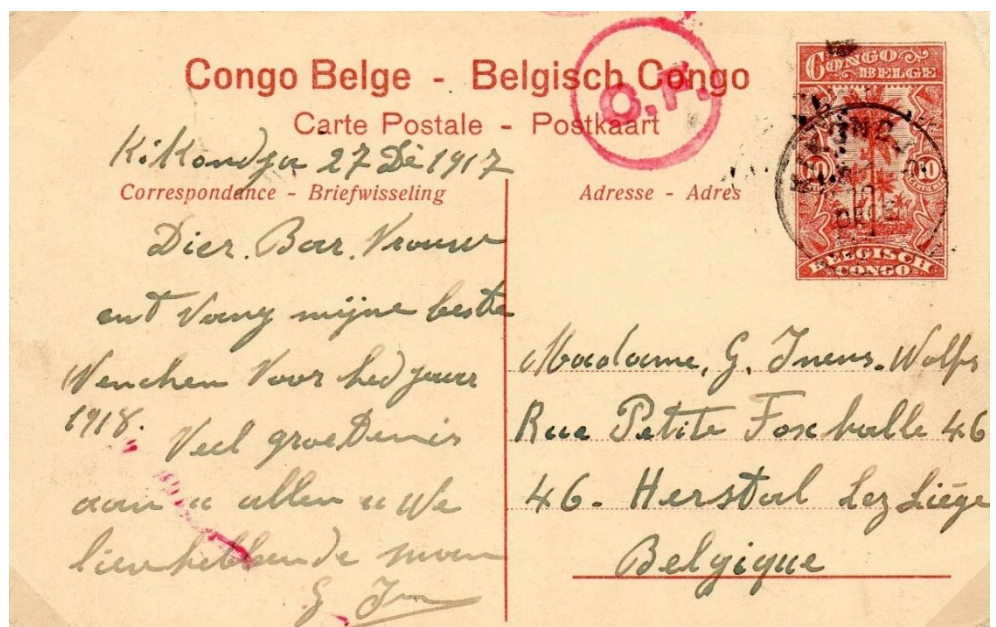 Congo Belge - Belgisch Congo
Carte Postale - Postkaart
O.F.
CONGO BELGE
10 10
BELGISCH CONGO
Kikondja 27 Dè 1917
Correspondance - Briefwisseling
Dier. Bar. Vrouw
ent Vang mijne beste
Wenchen Voor hed jaar
1918.
Veel groetenis
aan u allen u We
lievhebbende man
G
Adresse - Adres
Madame, G. Inens-Wolfs
Rue Petite Foxhalle 46
46 - Herstal Lez Liége
Belgique